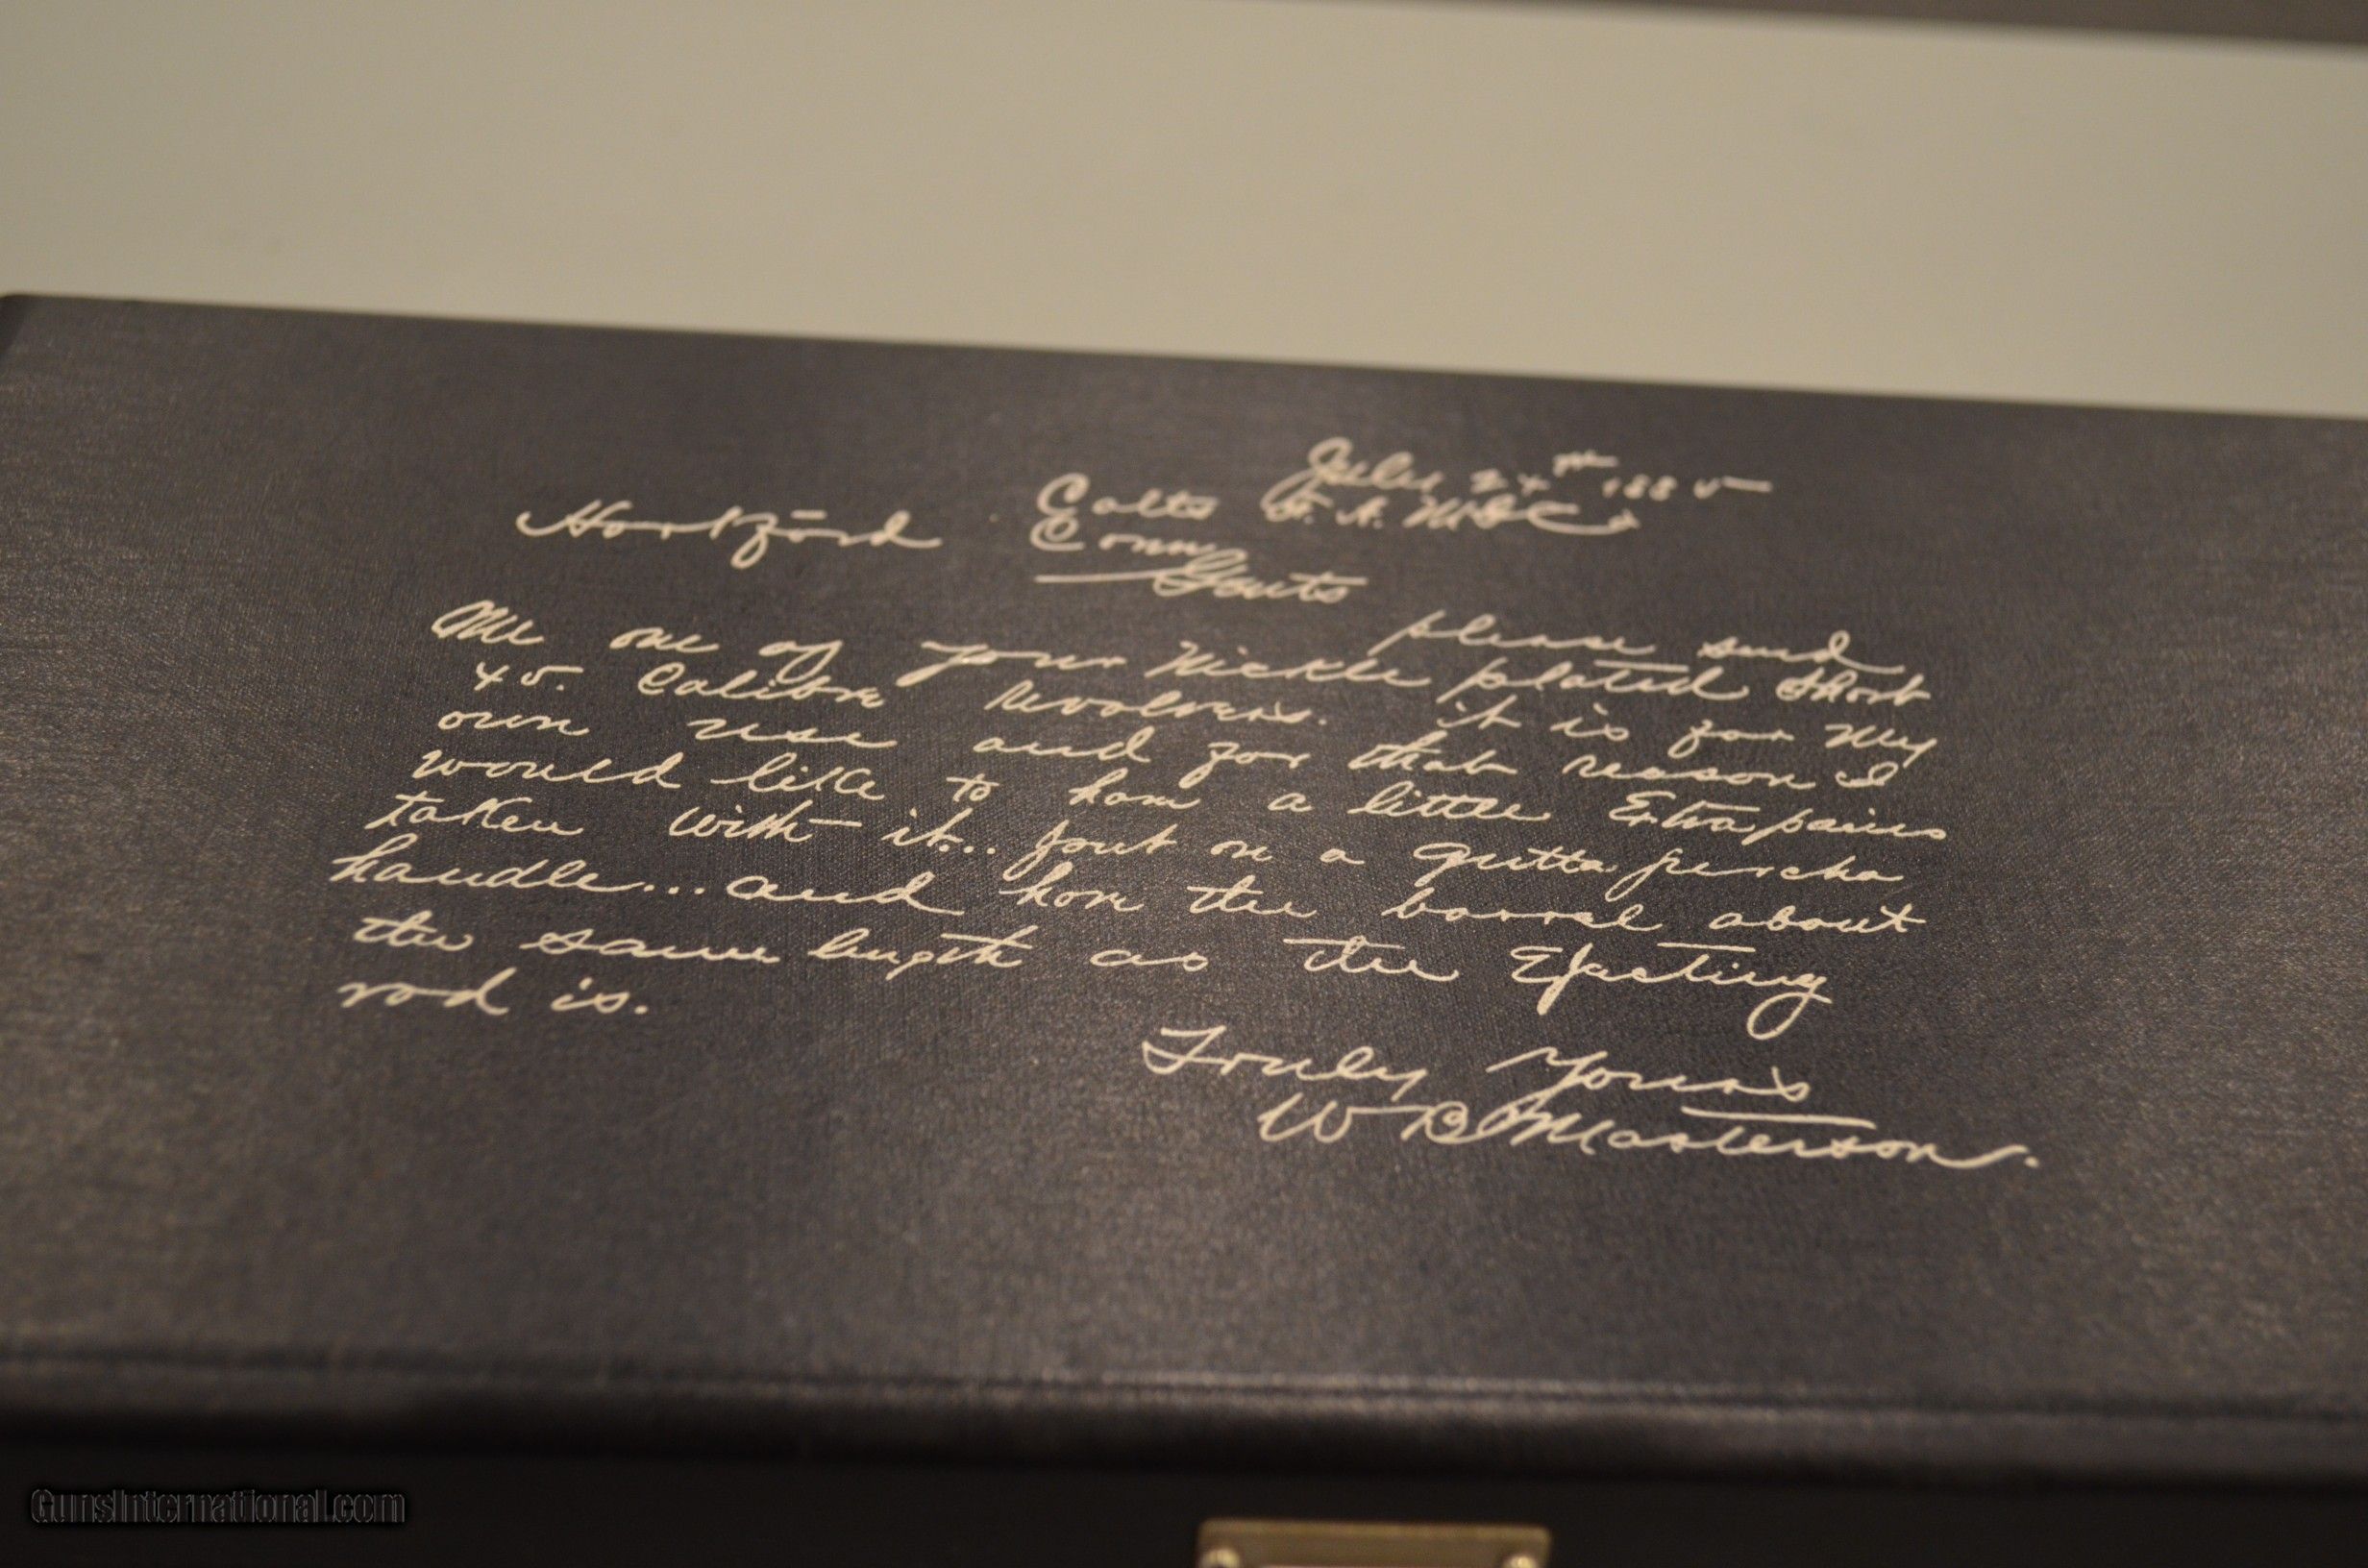 July 24th 1885
Colts F. A. M'f'g Co
Hartford Conn
Gents
please send
Me one of your Nickle plated short
45. Calibre revolvers. it is for My
own use and for that reason I
would like to have a little Extra pains
taken with it... put on a gutta percha
handle... and have the barrel about
the same length as the Ejecting
rod is.
Truly Yours
W B Masterson.
GunsInternational.com